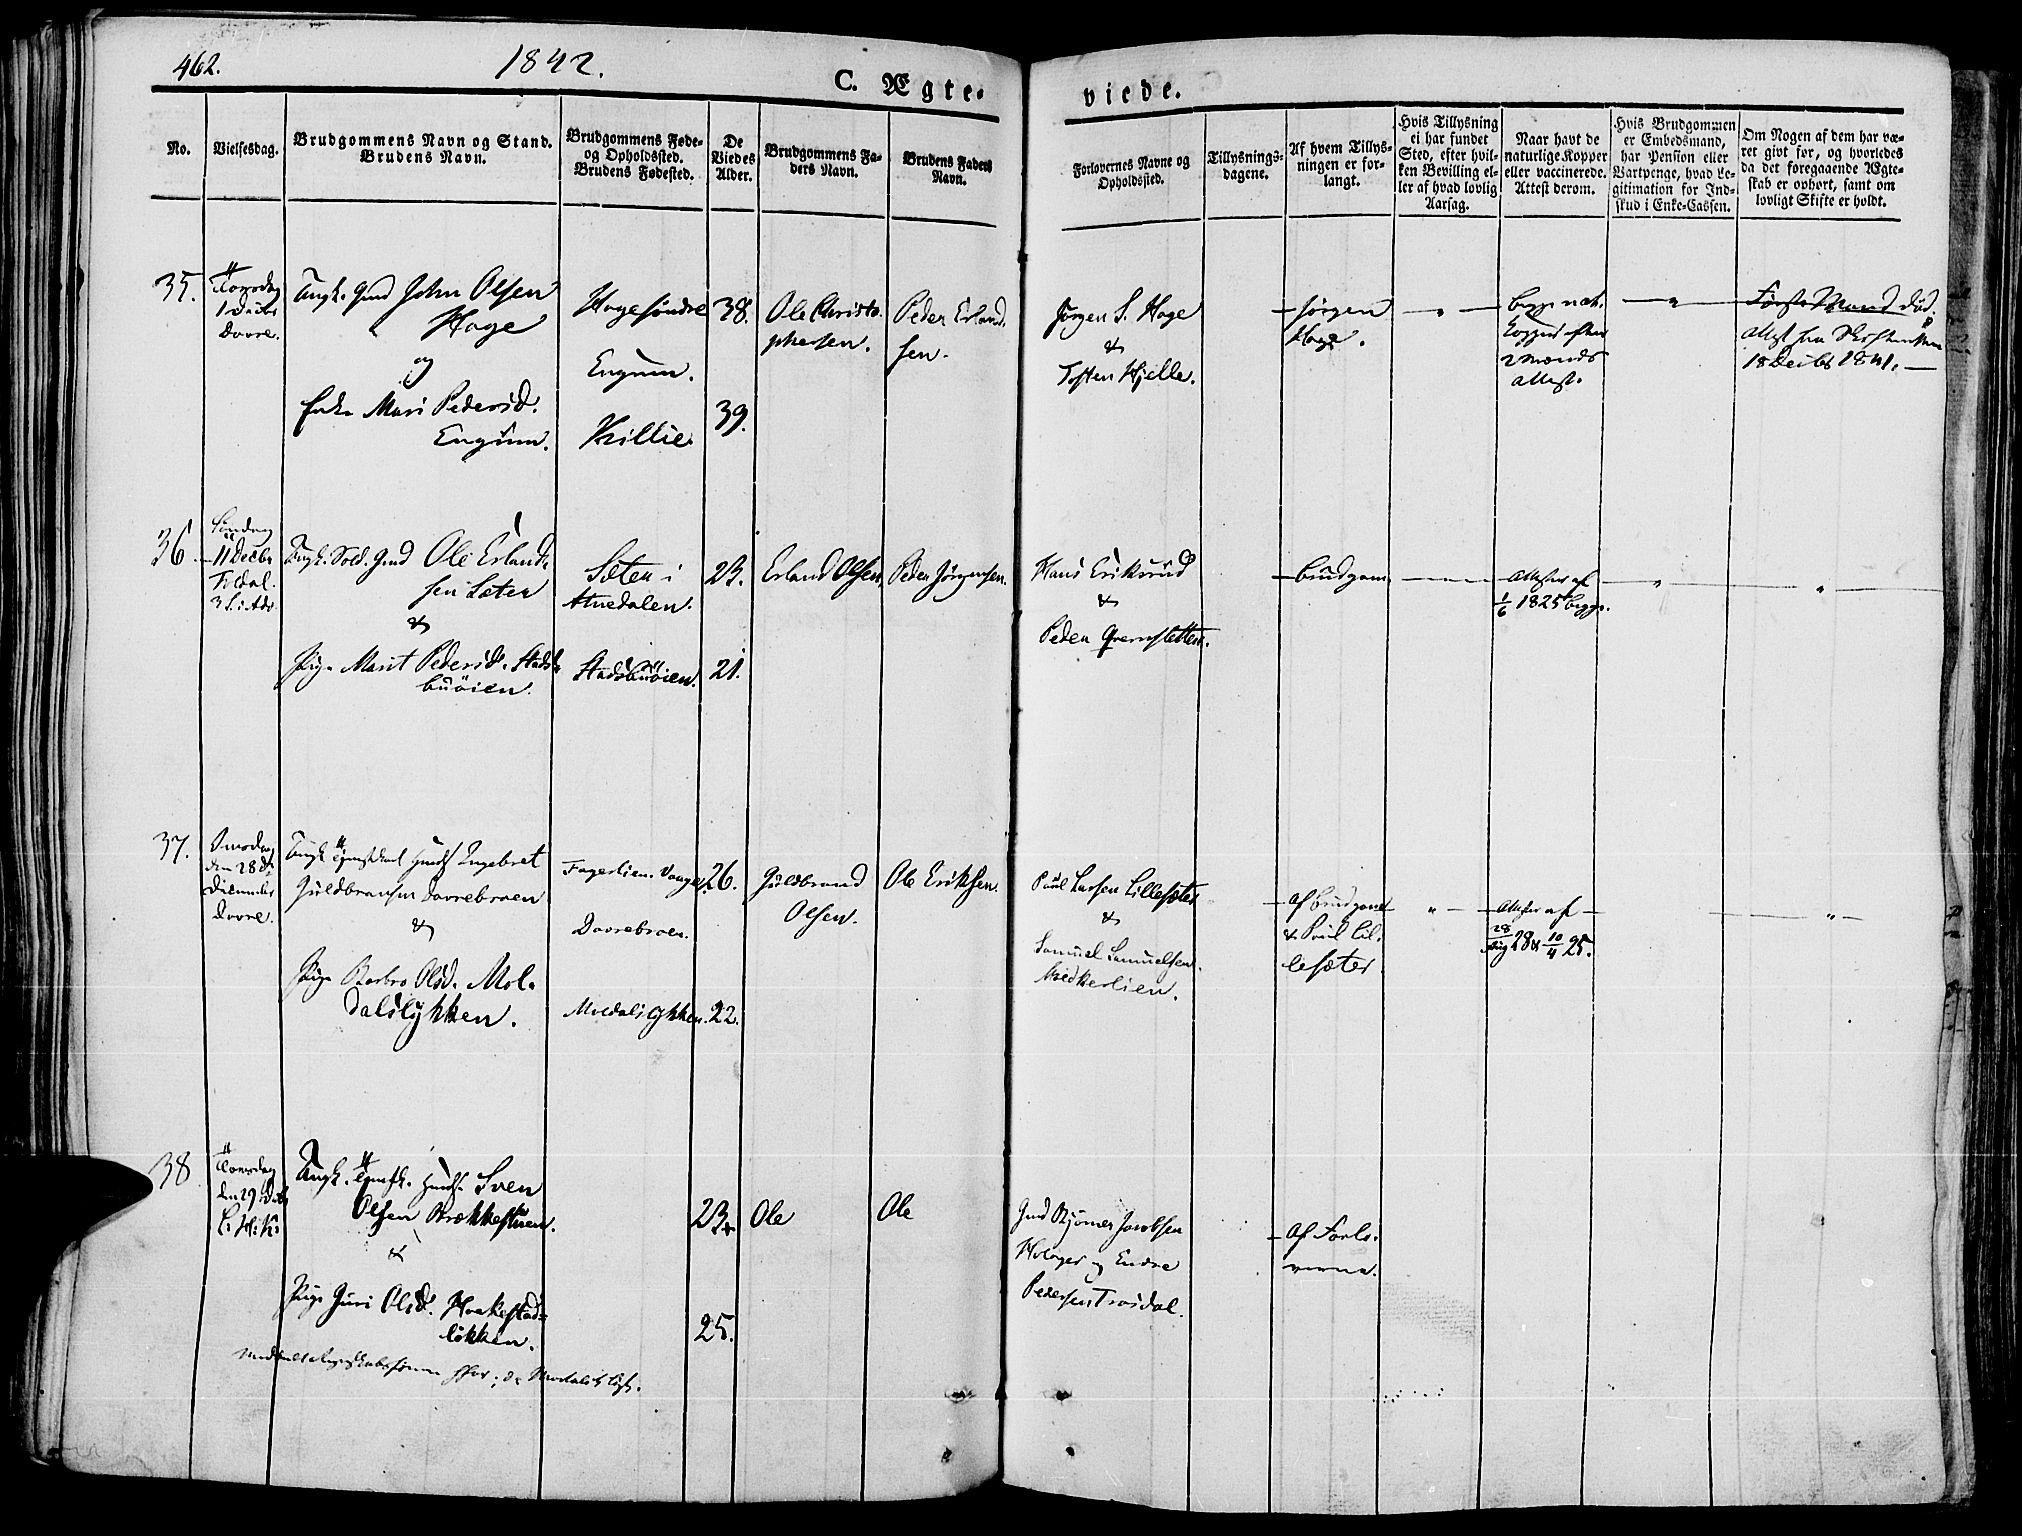 462.
1842.
C. Ægte-
viede.
No.
Vielsesdag.
Brudgommens Navn og Stand.
Brudens Navn.
Brudgommens Føde-
og Opholdssted.
Brudens Fødested.
De
Viedes
Alder.
Brudgommens Fa-
ders Navn.
Brudens Faders
Navn.
Forlovernes Navne og
Opholdssted.
Tillysnings-
dagene.
Af hvem Tillys-
ningen er for-
langt.
Hvis Tillysning
ei har fundet
Sted, efter hvil-
ken Bevilling el-
ler af hvad lovlig
Aarsag.
Naar havt de
naturlige Kopper
eller vaccinerede.
Attest derom.
Hvis Brudgommen
er Embedsmand,
har Pension eller
Vartpenge, hvad Le-
gitimation for Ind-
skud i Enke-Cassen.
Om Nogen af dem har væ-
ret givt før, og hvorledes
da det foregaaende Ægte-
skab er ophørt, samt om
lovligt Skifte er holdt.
35.
Torsdag
1 Decbr
Dovre.
Ungk. Gmd John Olsen
Hage
og
Enke Mari Pedersd.
Engum.
Hage søndre
Engum.
Killie.
38.
39.
Ole Christo-
phersen.
Peder Erland-
sen.
Jørgen S. Hage
&
Tosten Hjelle.
Jørgen
Hage.
begge nat.
Kopper efter
2 Mænds
Attest.
Første Mand død.
Attest fra Skifteretten
18 Decbr 1841.
36.
Søndag
11 Decbr
Foldal.
3 S. i Adv.
Ungk. Sold. Gmd Ole Erland-
sen Sæter
&
Pige Marit Pedersd. Stads-
buøien.
Sæter i
Atnedalen.
Stadsbuøien.
23.
21.
Erland Olsen.
Peder Jørgensen.
Hans Eriksrud
&
Peder Gremsletten.
brudgom
Attester af
1/6 1825 begge.
37.
Onsdag
den 28de
December
Dovre.
Ungk Tjenstkarl Huusm Ingebret
Guldbransen Dovrebroen
&
Pige Barbro Olsd. Mol-
dalslykken.
Fagerlien. Vaage
Dovrebroen.
Moldalslykken.
26.
22.
Guldbrand
Olsen.
Ole Eriksen.
Poul Larsen Lillesæter
&
Samuel Samuelsen
af brudgom
& Poul Lil-
lesæter
Attester af
28/Aug 28 & 10/4 25.
38
Torsdag
den 29 Decbr
Ungk. Tjenstk. Huusm. Sven
Olsen Brækkestuen.
&
Pige Guri Olsd. Hvekestad-
løkken.
23
25.
Ole
Ole
Gmd Bjørner Jacobsen
Holager og Endre
Pedersen Trosdal.
af Forlo-
verne.